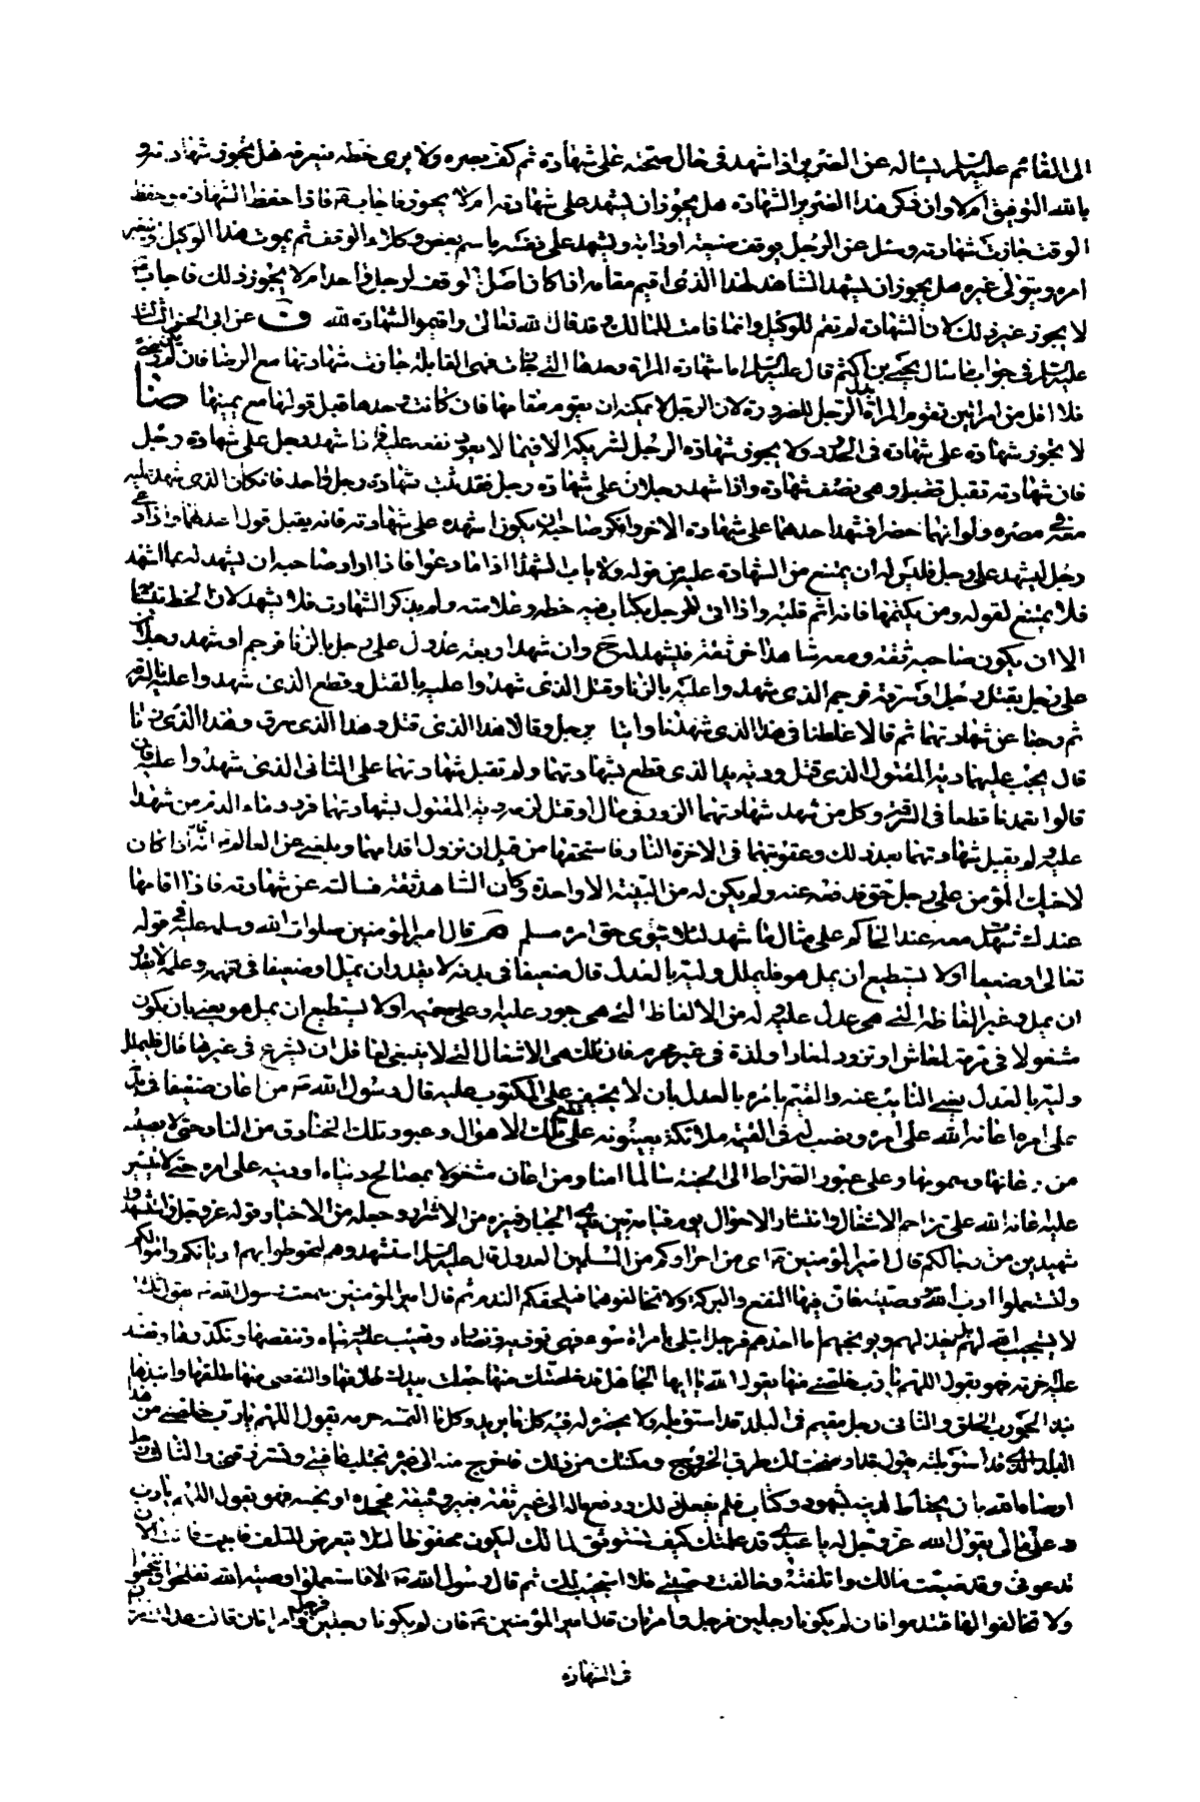 الى القائم عليه السلم يسأله عن الضرير اذا شهد في حال صحته على شهادة ثم كف بصره ولا يرى خطه فيعرفه هل يجوز شهادته و
بالله التوفيق ام لا وان ذكر هذا الضرير الشهادة هل يجوز ان يشهد على شهادته ام لا يجوز فاجاب ع فاذا حفظ الشهادة وحفظ
الوقت جازت شهادته وسئل عن الرجل يوقف ضيعة او دابة ويشهد على نفسه باسم بعض وكلاء الوقف ثم يموت هذا الوكيل ويتغير
امره ويتولى غيره هل يجوز ان يشهد الشاهد لهذا الذي اقيم مقامه اذا كان اصل الوقف لرجل واحد ام لا يجوز ذلك فاجاب ع
لا يجوز غير ذلك لان الشهادة لم تقم للوكيل وانما قامت للمالك وقد قال الله تعالى واقيموا الشهادة لله ف عن ابي الحسن الثالث
عليه السلم في جواب ما سأل يحيى بن اكثم قال عليه السلم اما شهادة المرأة وحدها التي جازت فهي القابلة جازت شهادتها مع الرضا فان لم يكن رضى
فلا اقل من امرأتين تقوم المرأة بدل الرجل للضرورة لان الرجل لا يمكنه ان يقوم مقامها فان كانت وحدها قبل قولها مع يمينها ضا
لا يجوز شهادة على شهادة في الحدود ولا يجوز شهادة الرجل لشريكه الا فيما لا يعود نفعه عليه واذا شهد رجل على شهادة رجل
فان شهادته تقبل وهي نصف شهادة واذا شهد رجلان على شهادة رجل فقد ثبت شهادة رجل واحد فان كان الذي شهد عليه
معه في مصره ولو انهما حضرا فشهد احدهما على شهادة الاخر وانكر صاحبه ان يكون اشهده على شهادته فانه يقبل قول اعدلهما واذا دعي
رجل ليشهد على رجل فليس له ان يمتنع من الشهادة عليه من قوله ولا ياب الشهداء اذا ما دعوا فاذا اراد صاحبه ان يشهد له بما اشهد
فلا يمتنع لقوله ومن يكتمها فانه اثم قلبه واذا اتى الرجل بكتاب فيه خطه وعلامته ولم يذكر الشهادة فلا يشهد لان الخط يتشابه
الا ان يكون صاحبه ثقة ومعه شاهد اخر ثقة فليشهد له ح وان شهد اربعة عدول على رجل بالزنا فرجم او شهد رجلان
على رجل بقتل رجل او سرقة فرجم الذي شهدوا عليه بالزنا وقتل الذي شهدوا عليه بالقتل وقطع الذي شهدوا عليه بالسرقة
ثم رجعا عن شهادتهما ثم قالا غلطنا في هذا الذي شهدنا واتيا برجل وقالا هذا الذي قتل وهذا الذي سرق وهذا الذي زنا
قال يجب عليهما دية المقتول الذي قتل ودية يد الذي قطع بشهادتهما ولم تقبل شهادتهما على الثاني الذي شهدوا عليه فان
قالوا تعمدنا قطعا في السرقة وكل من شهد شهادة الزور في مال او قتل لزمه دية المقتول بشهادتهما فرد وماء الدم من شهدا
عليه لم يقبل شهادتهما بعد ذلك وعقوبتهما في الاخرة النار فاستحقها من قبل ان تزول اقدامهما وبلغني عن العالم ع انه اذا كان
لاخيك المؤمن على رجل حق فدفعه عنه ولم يكن له من البينة الا واحدة وكان الشاهد ثقة فسالته عن شهادته فاذا اقامها
عندك شهدت معه عند الحاكم على مثال ما شهد لئلا يتوى حق امرء مسلم م قال امير المؤمنين صلوات الله وسلامه عليه في قوله
تعالى او ضعيفا او لا يستطيع ان يمل هو فليملل وليه بالعدل قال ضعيفا في بدنه لا يقدر ان يمل او ضعيفا في فهمه وعلمه لا يقدر
ان يمل ويميز الفاظه التي هي عدل عليه وله من الالفاظ التي هي جور عليه وعلى حميمه او لا يستطيع ان يمل هو يعني بان يكون
مشغولا في مرمة لمعاش او تزود لمعاد او لذة في غير محرم فان تلك هي الاشغال التي لا ينبغي لعاقل ان يشرع في غيرها قال فليملل
وليه بالعدل يعني النائب عنه والقيم بامره بالعدل بان لا يحيف على المكتوب عليه قال رسول الله ص من اعان ضعيفا في بدنه
على امره اعانه الله على امره ونصب له في القيمة ملائكة يعينونه على قطع تلك الاهوال وعبور تلك الخنادق من النار حتى لا يصيبه
من دخانها وسمومها وعلى عبور الصراط الى الجنة سالما امنا ومن اعان مشغولا بمصالح دنياه او دينه على امره حتى لا ينتشر
عليه اعانه الله على تزاحم الاشغال وانتشار الاحوال يوم قيامه بين يدي الجبار فيزه من الاشرار وجعله من الاخيار قوله عز وجل واستشهدوا
شهيدين من رجالكم قال امير المؤمنين ع اي من احراركم من المسلمين العدول قال عليه السلم استشهدوهم لتحوطوا بهم اديانكم واموالكم
ولتستعملوا ادب الله ووصيته فان فيهما النفع والبركة ولا تخالفوهما فيلحقكم الندم ثم قال امير المؤمنين سمعت رسول الله ص يقول ثلثة
لا يستجيب الله لهم بل يعذلهم ويوبخهم اما احدهم فرجل ابتلي بامرأة سوء فهي تؤذيه وتضاره وتعيب عليه دنياه وتنغصها وتكدرها وتفسد
عليه اخرته فهو يقول اللهم يا رب خلصني منها يقول الله يا ايها الجاهل قد خلصتك منها جعلت بيدك طلاقها والتقصي منها طلقها وانبذها
نبذ الجورب الخلق والثاني رجل مقيم في البلد قد استوبله ولا يحضر له فيه كل ما يريد وكل ما التمسه حرمه يقول اللهم يا رب خلصني من هذا
البلد الذي قد استوبلته فيقول قد اوضحت لك طرق الخروج ومكنتك من ذلك فاخرج منه الى غيره تجتلب عافيتي وتسترزقني والثالث رجل
اوصاه الله بان يحتاط لدينه بشهود وكتاب فلم يفعل ذلك ودفع ماله الى غير ثقة بغير وثيقة فجحده او بخسه فهو يقول اللهم يا رب
رد علي مالي يقول الله عز وجل له يا عبدي قد علمتك كيف تستوثق لمالك ليكون محفوظا لئلا يتعرض للتلف فابيت فانت الان
تدعوني وقد ضيعت مالك واتلفته وخالفت وصيتي فلا استجيب لك ثم قال رسول الله ص الا فاستعملوا وصية الله تفلحوا وتنجحوا
ولا تخالفوها فتندموا فان لم يكونا رجلين فرجل وامرأتان قال امير المؤمنين ع فان لم يكونا رجلين فرجل وامرأتان
في الشهادة